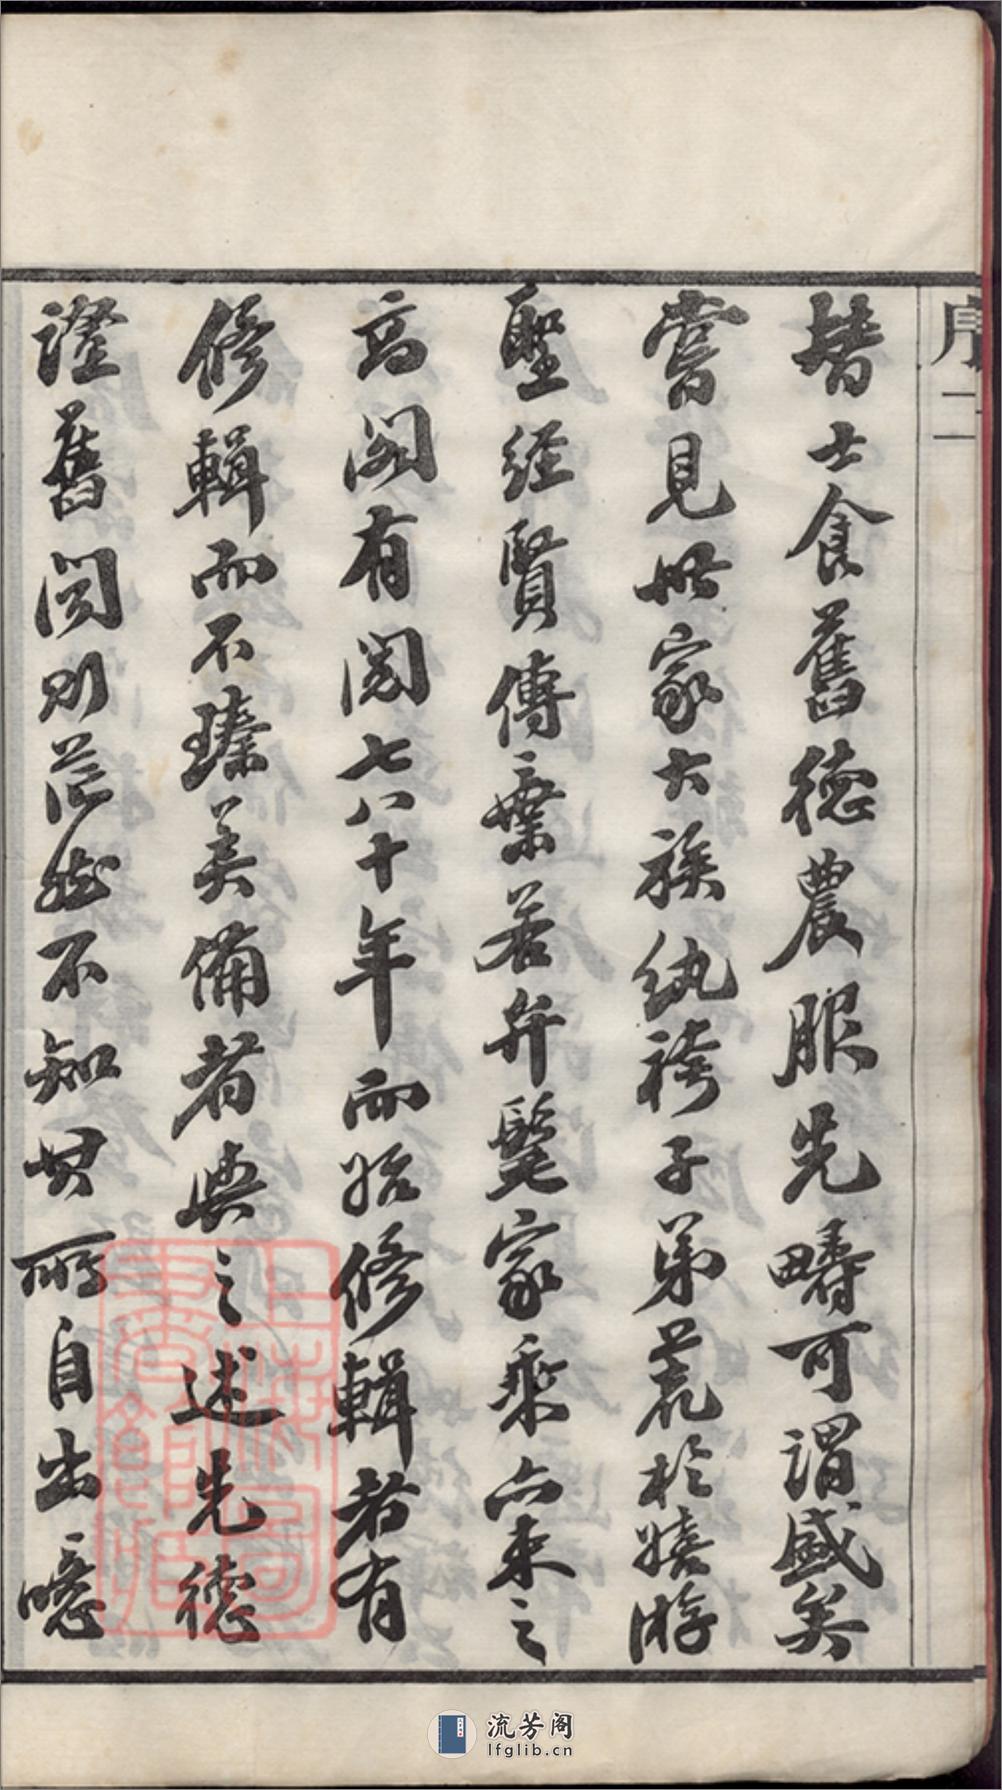 序二
替士食舊德農服先疇可謂盛矣
嘗見世家大族紈袴子弟荒於嬉游
聖經賢傳棄若弁髦家乘亦束之
高閣有閱七八十年而始修輯者有
修輯而不臻美備者與之述先德
證舊聞則茫然不知其所自出噫
流芳阁
lfglib.cn